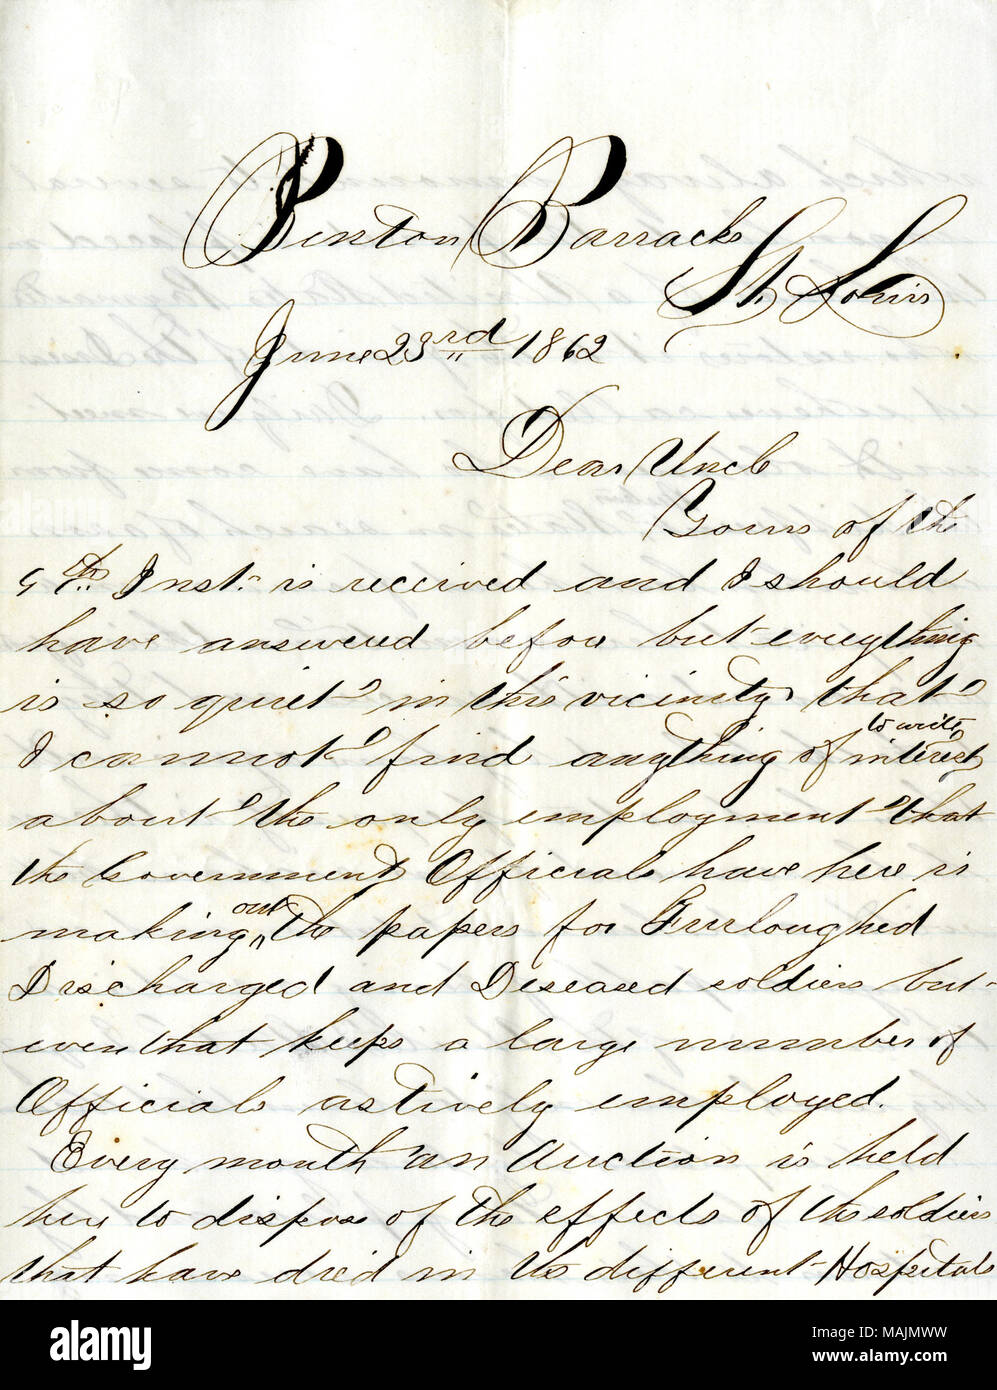 Benton Barracks
St. Louis
June 23rd 1862
Dear Uncle
Yours of the
9th Inst. is received and I should
have answered before but everything
is so quiet in this vicinity that
I cannot find anything of interest to write
about the only employment that
the Government Officials have here is
making out the papers for Furloughed
Discharged and Deseased soldiers but
even that keeps a large number of
Officials actively employed.
Every month an Auction is held
here to dispose of the effects of the soldiers
that have died in the different Hospitals
alamy
Image ID: MAJMWW
www.alamy.com